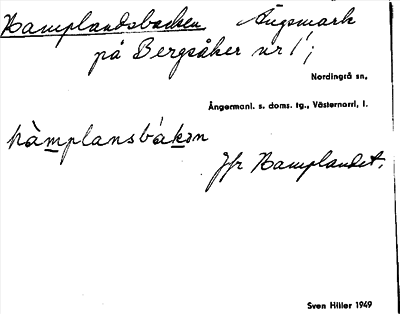 Hamplandsbacken Ängsmark
på Bergsåker nr 1;
Nordingrå sn,
Ångermanl. s. doms. tg., Västernorrl. l.
hàmplansbákən
Jfr Hamplandet.
Sven Hiller 1949